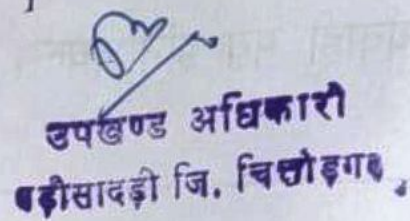 उपखण्ड अधिकारी
बड़ीसादड़ी जि. चित्तोड़गढ़